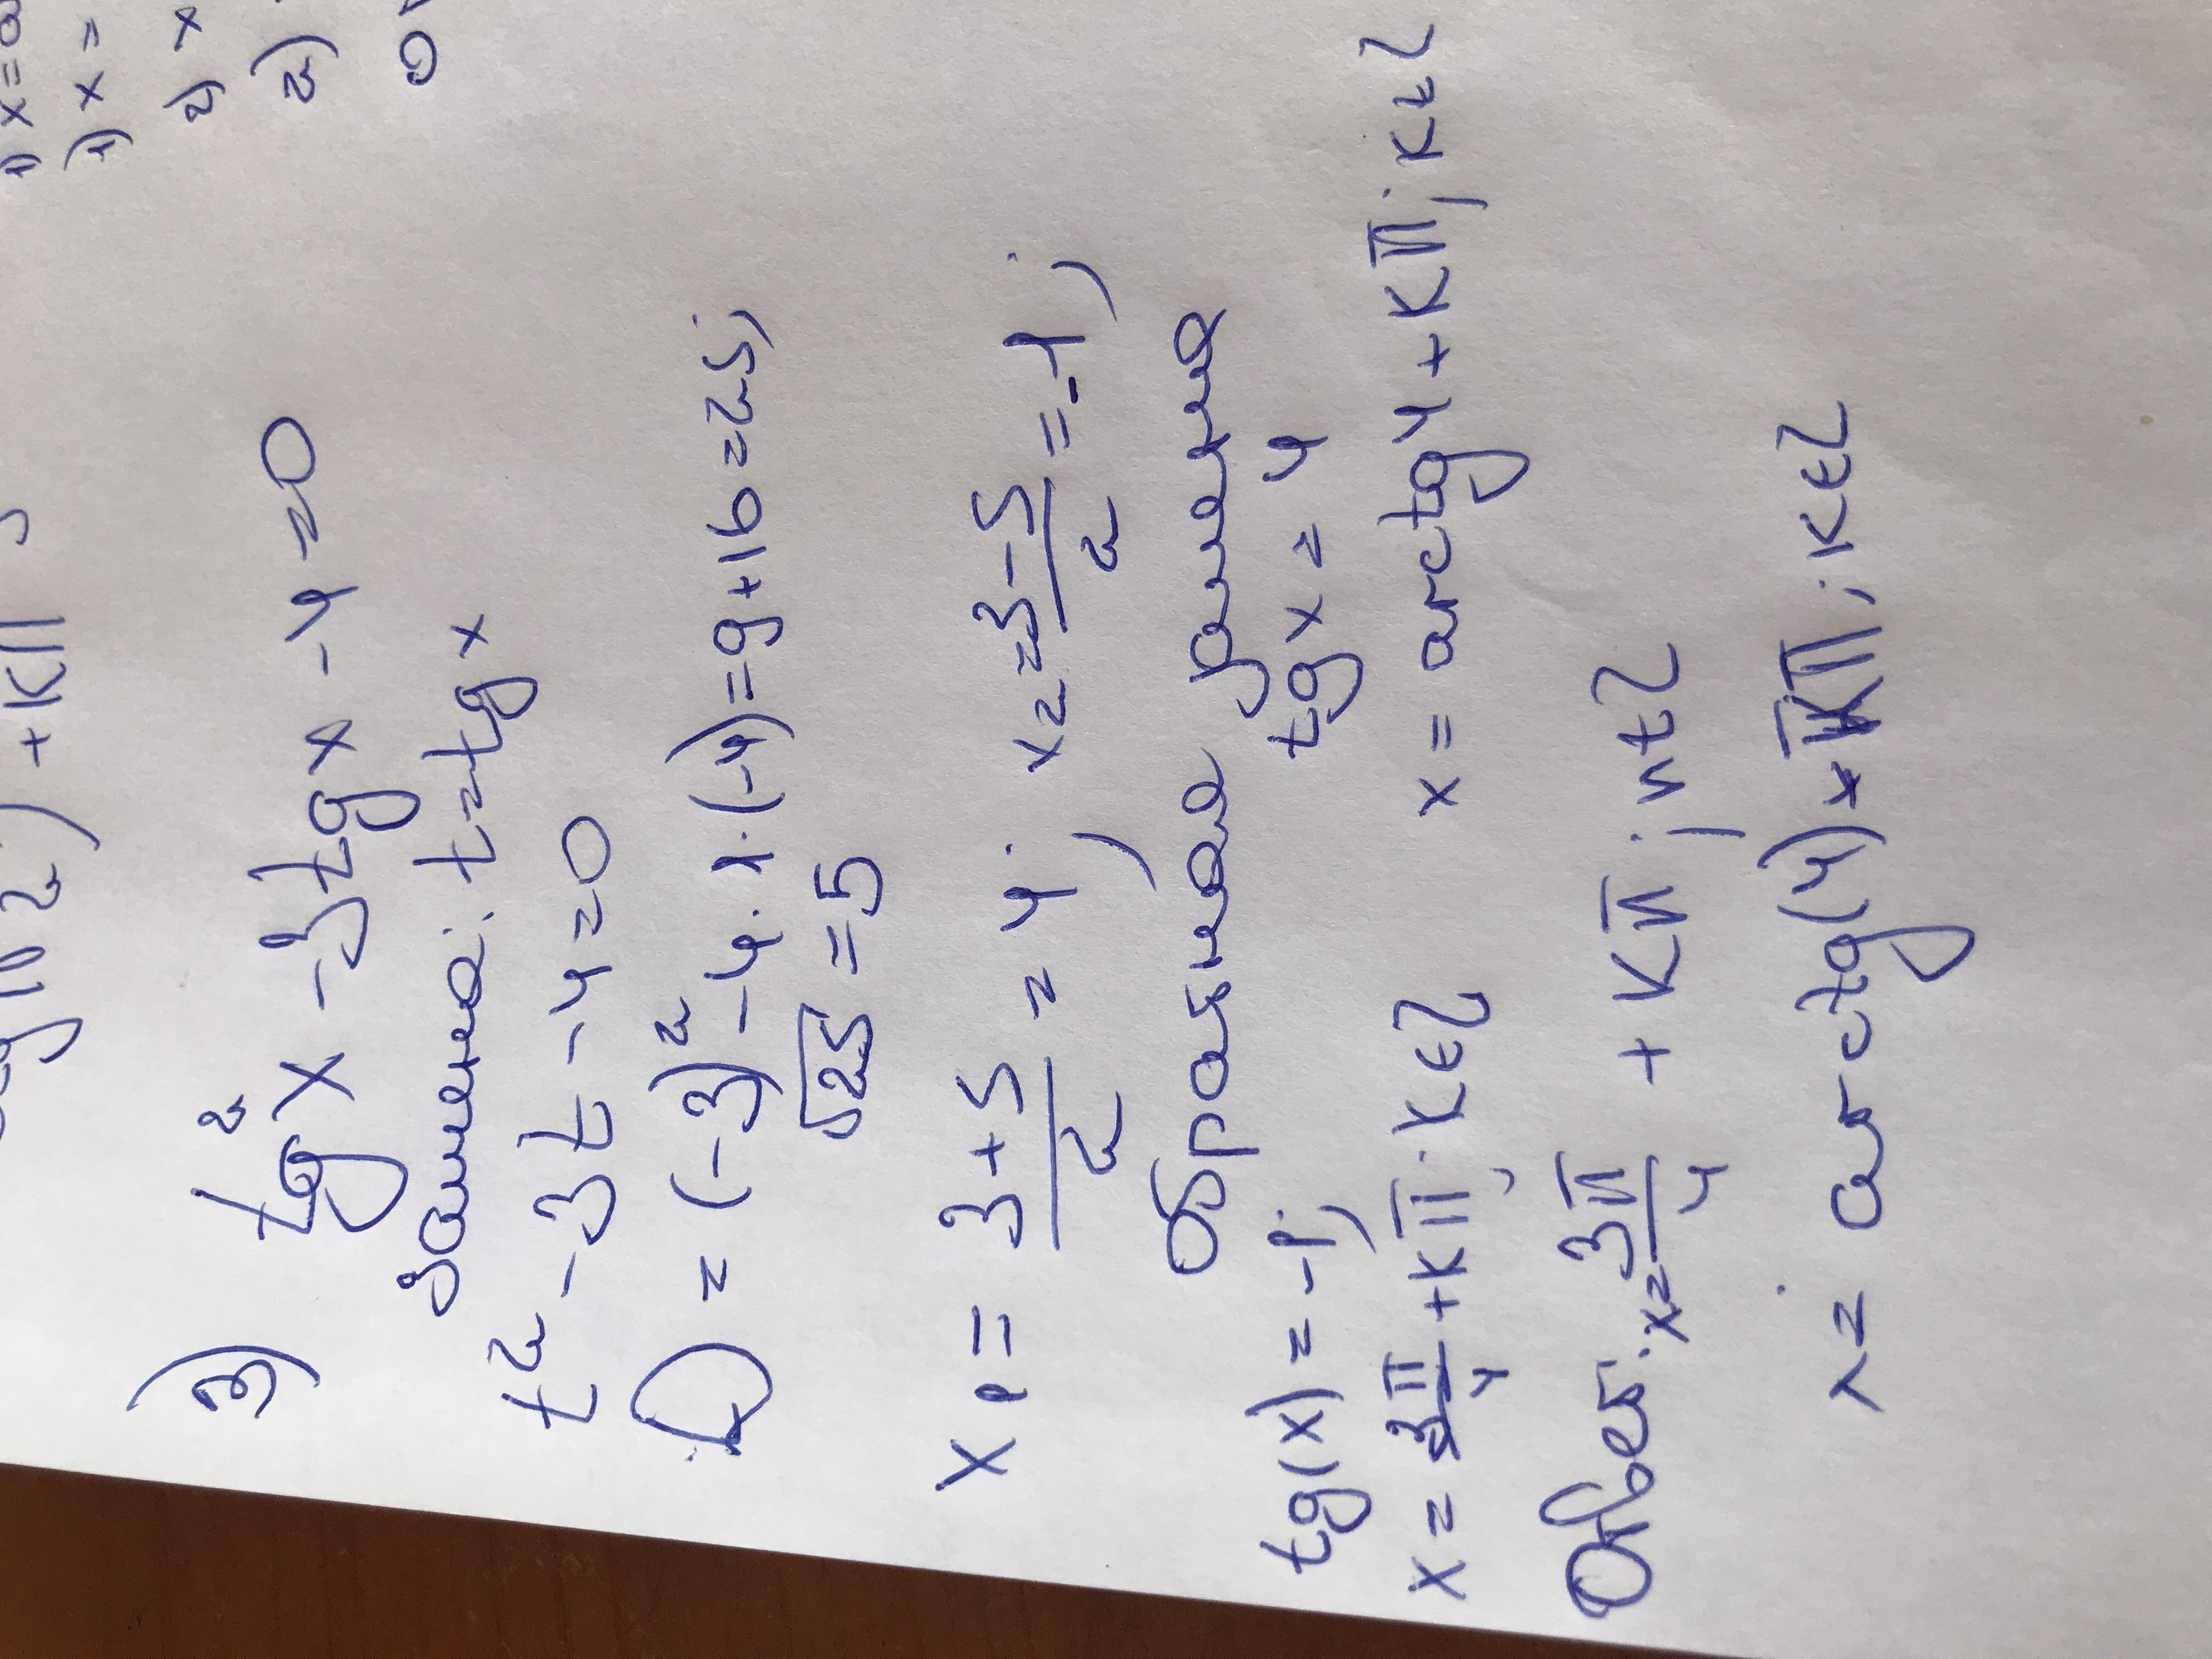 + KП
1) x =
1) x =
2) x
2)
3) tg²x - 3tgx - 4 = 0
Замена: t = tgx
t² - 3t - 4 = 0
D = (-3)² - 4·1·(-4) = 9 + 16 = 25;
√25 = 5
x₁ = 3+5/2 = 4; x₂ = 3-5/2 = -1;
Обратная замена
tg(x) = -1; tgx = 4
x = 3П/4 + KП; K∈Z x = arctg4 + KП; K∈Z
Ответ: x = 3П/4 + KП; n∈Z
x = arctg(4) + KП; K∈Z